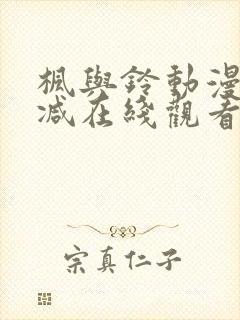 楓與鈴動漫
減在綫觀看
宗真仁子